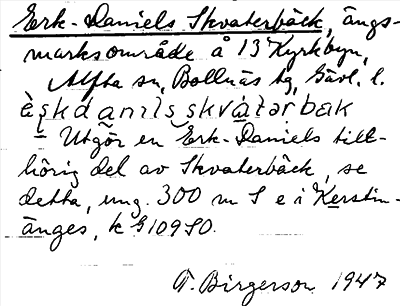 Erk-Daniels Skvaterbäck, ängs-
marksområde å 13 Kyrkbyn,
Alfta sn, Bollnäs tg, Gävl. l.
Utgör en Erk-Daniels till-
hörig del av Skvaterbäck, se
detta, umg. 300 m S e i Kerstin-
änges, k G 109 SO.
T. Birgerson 1947